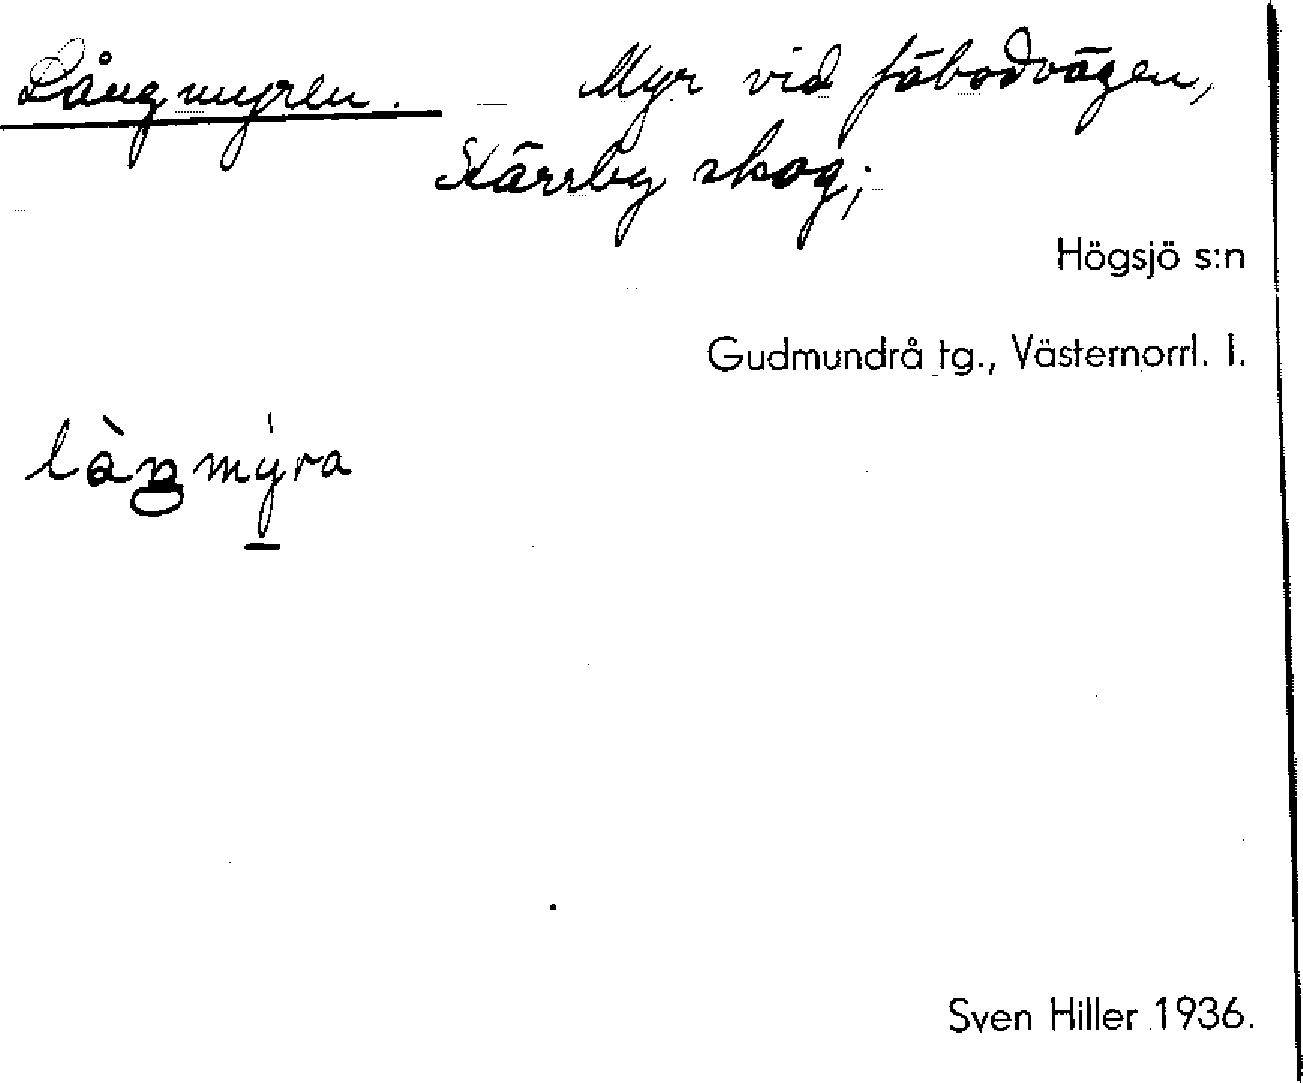 Långmyren. Myr vid fäbodvägen,
Kärrby skog;
Högsjö s:n
Gudmundrå tg., Västernorrl. l.
làŋmýra
Sven Hiller 1936.